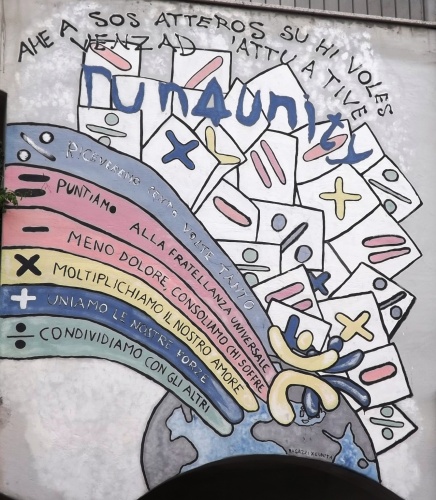 AHE A SOS ATTEROS SU HI VOLES
VENZAD 'ATTU A TIVE
run4unity
% RICHIAMO
= PUNTIAMO ALLA FRATELLANZA UNIVERSALE
- MENO DOLORE, CONSOLIAMO CHI SOFFRE
× MOLTIPLICHIAMO IL NOSTRO AMORE
+ UNIAMO LE NOSTRE FORZE
÷ CONDIVIDIAMO CON GLI ALTRI